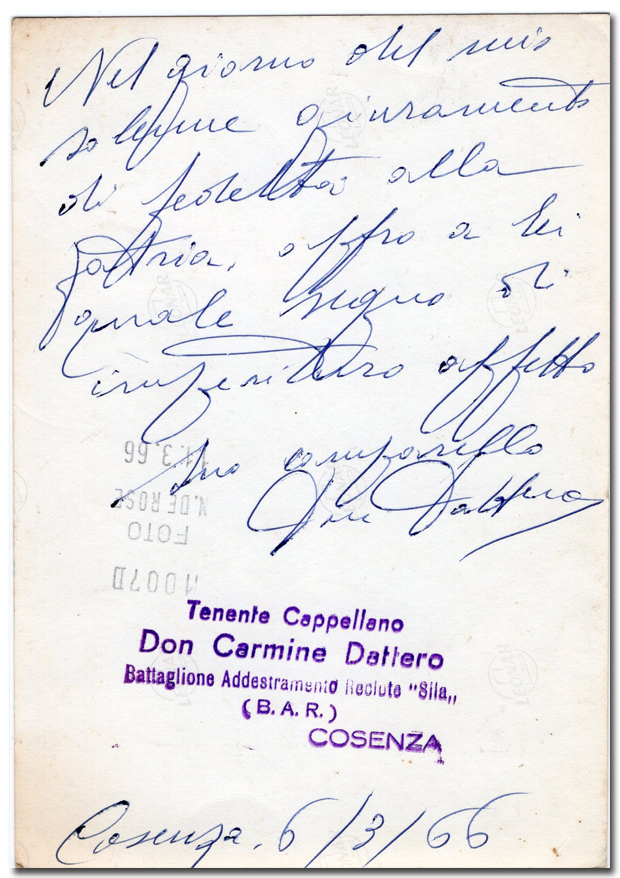 Nel giorno del mio
solenne giuramento
di fedeltà alla
patria, offro a lei
quale segno di
imperituro affetto
Suo
Don Dattero
FOTO
N. DE ROSE
3.66
Tenente Cappellano
Don Carmine Dattero
Battaglione Addestramento Reclute "Sila„
(B. A. R.)
COSENZA
Cosenza, 6/3/66
LEONAR